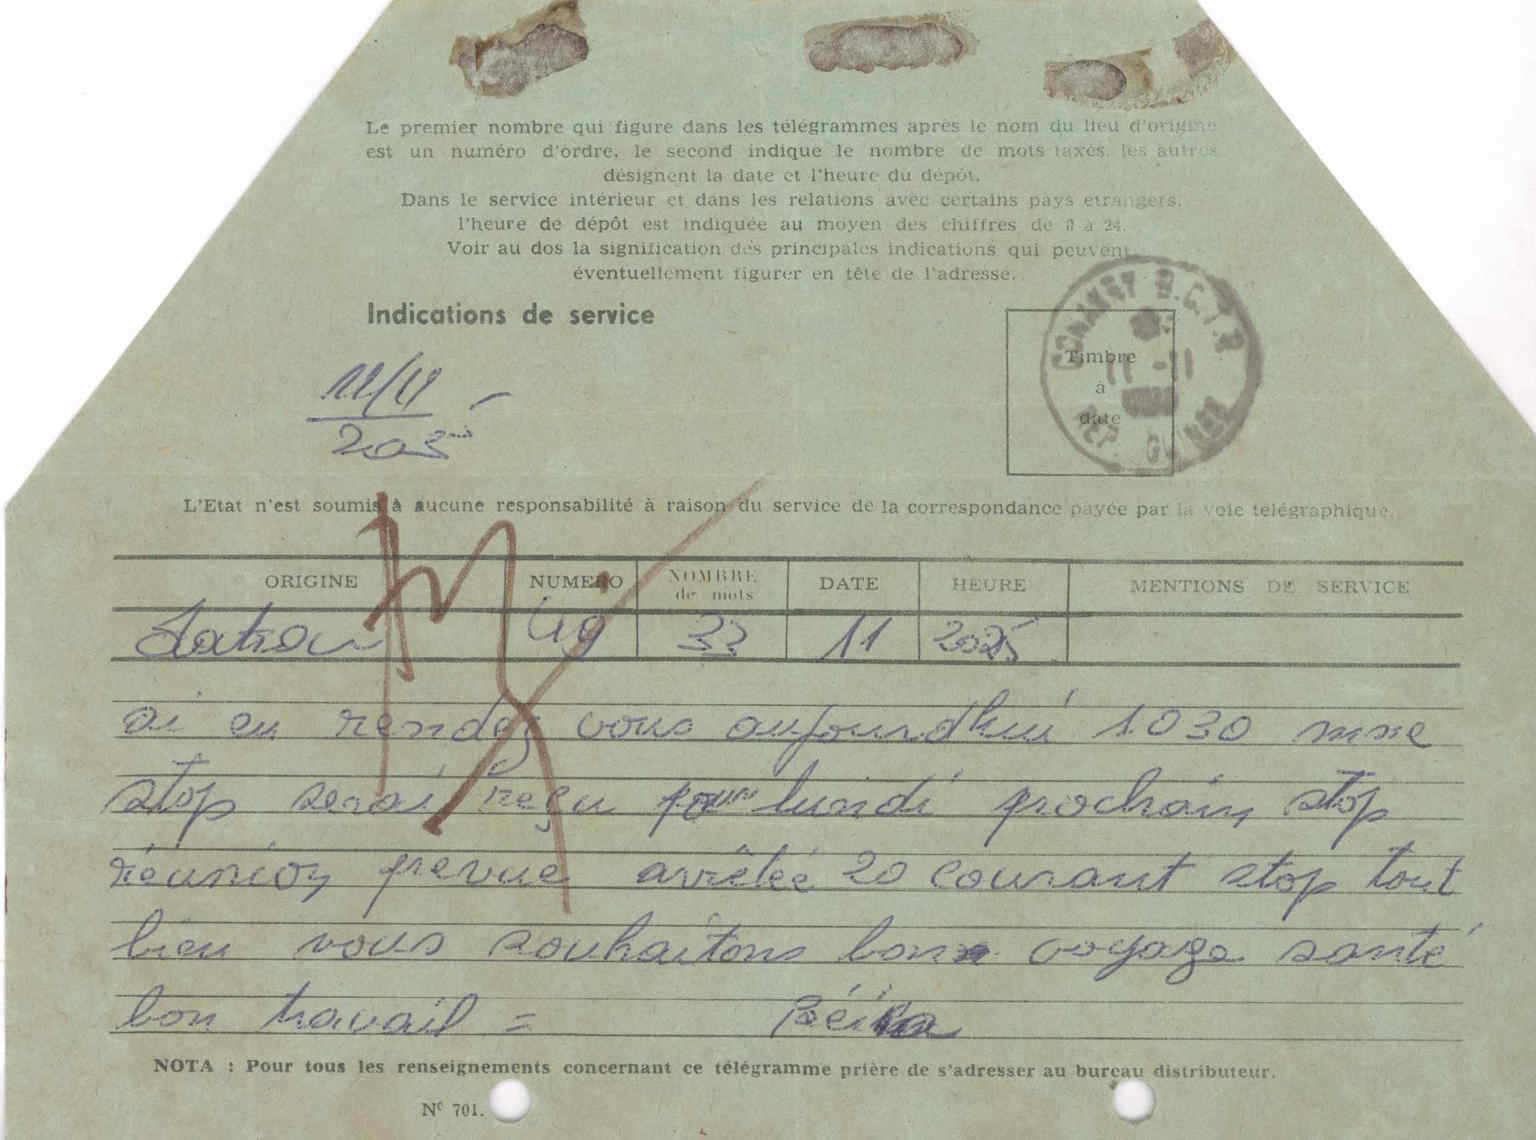 Le premier nombre qui figure dans les télégrammes après le nom du lieu d'origine
est un numéro d'ordre, le second indique le nombre de mots taxés, les autres
désignent la date et l'heure du dépôt.
Dans le service intérieur et dans les relations avec certains pays etrangers,
l'heure de dépôt est indiquée au moyen des chiffres de 0 à 24.
Voir au dos la signification des principales indications qui peuvent
éventuellement figurer en tête de l'adresse.
Indications de service
CONAKRY B.C.T.R
11 -11
REP. GUINEE
Timbre
à
date
11/11
L'Etat n'est soumis à aucune responsabilité à raison du service de la correspondance payée par la voie telégraphique.
ORIGINE NUMERO NOMBRE de mots DATE HEURE MENTIONS DE SERVICE
49 33 11 2025
ai eu rendez vous aujourdhui 1030 mme
stop serai reçu pour lundi prochain stop
réunion prevue arrêtée 20 courant stop tout
bien vous souhaitons bon voyage santé
bon travail =
NOTA : Pour tous les renseignements concernant ce télégramme prière de s'adresser au bureau distributeur.
Nº 701.